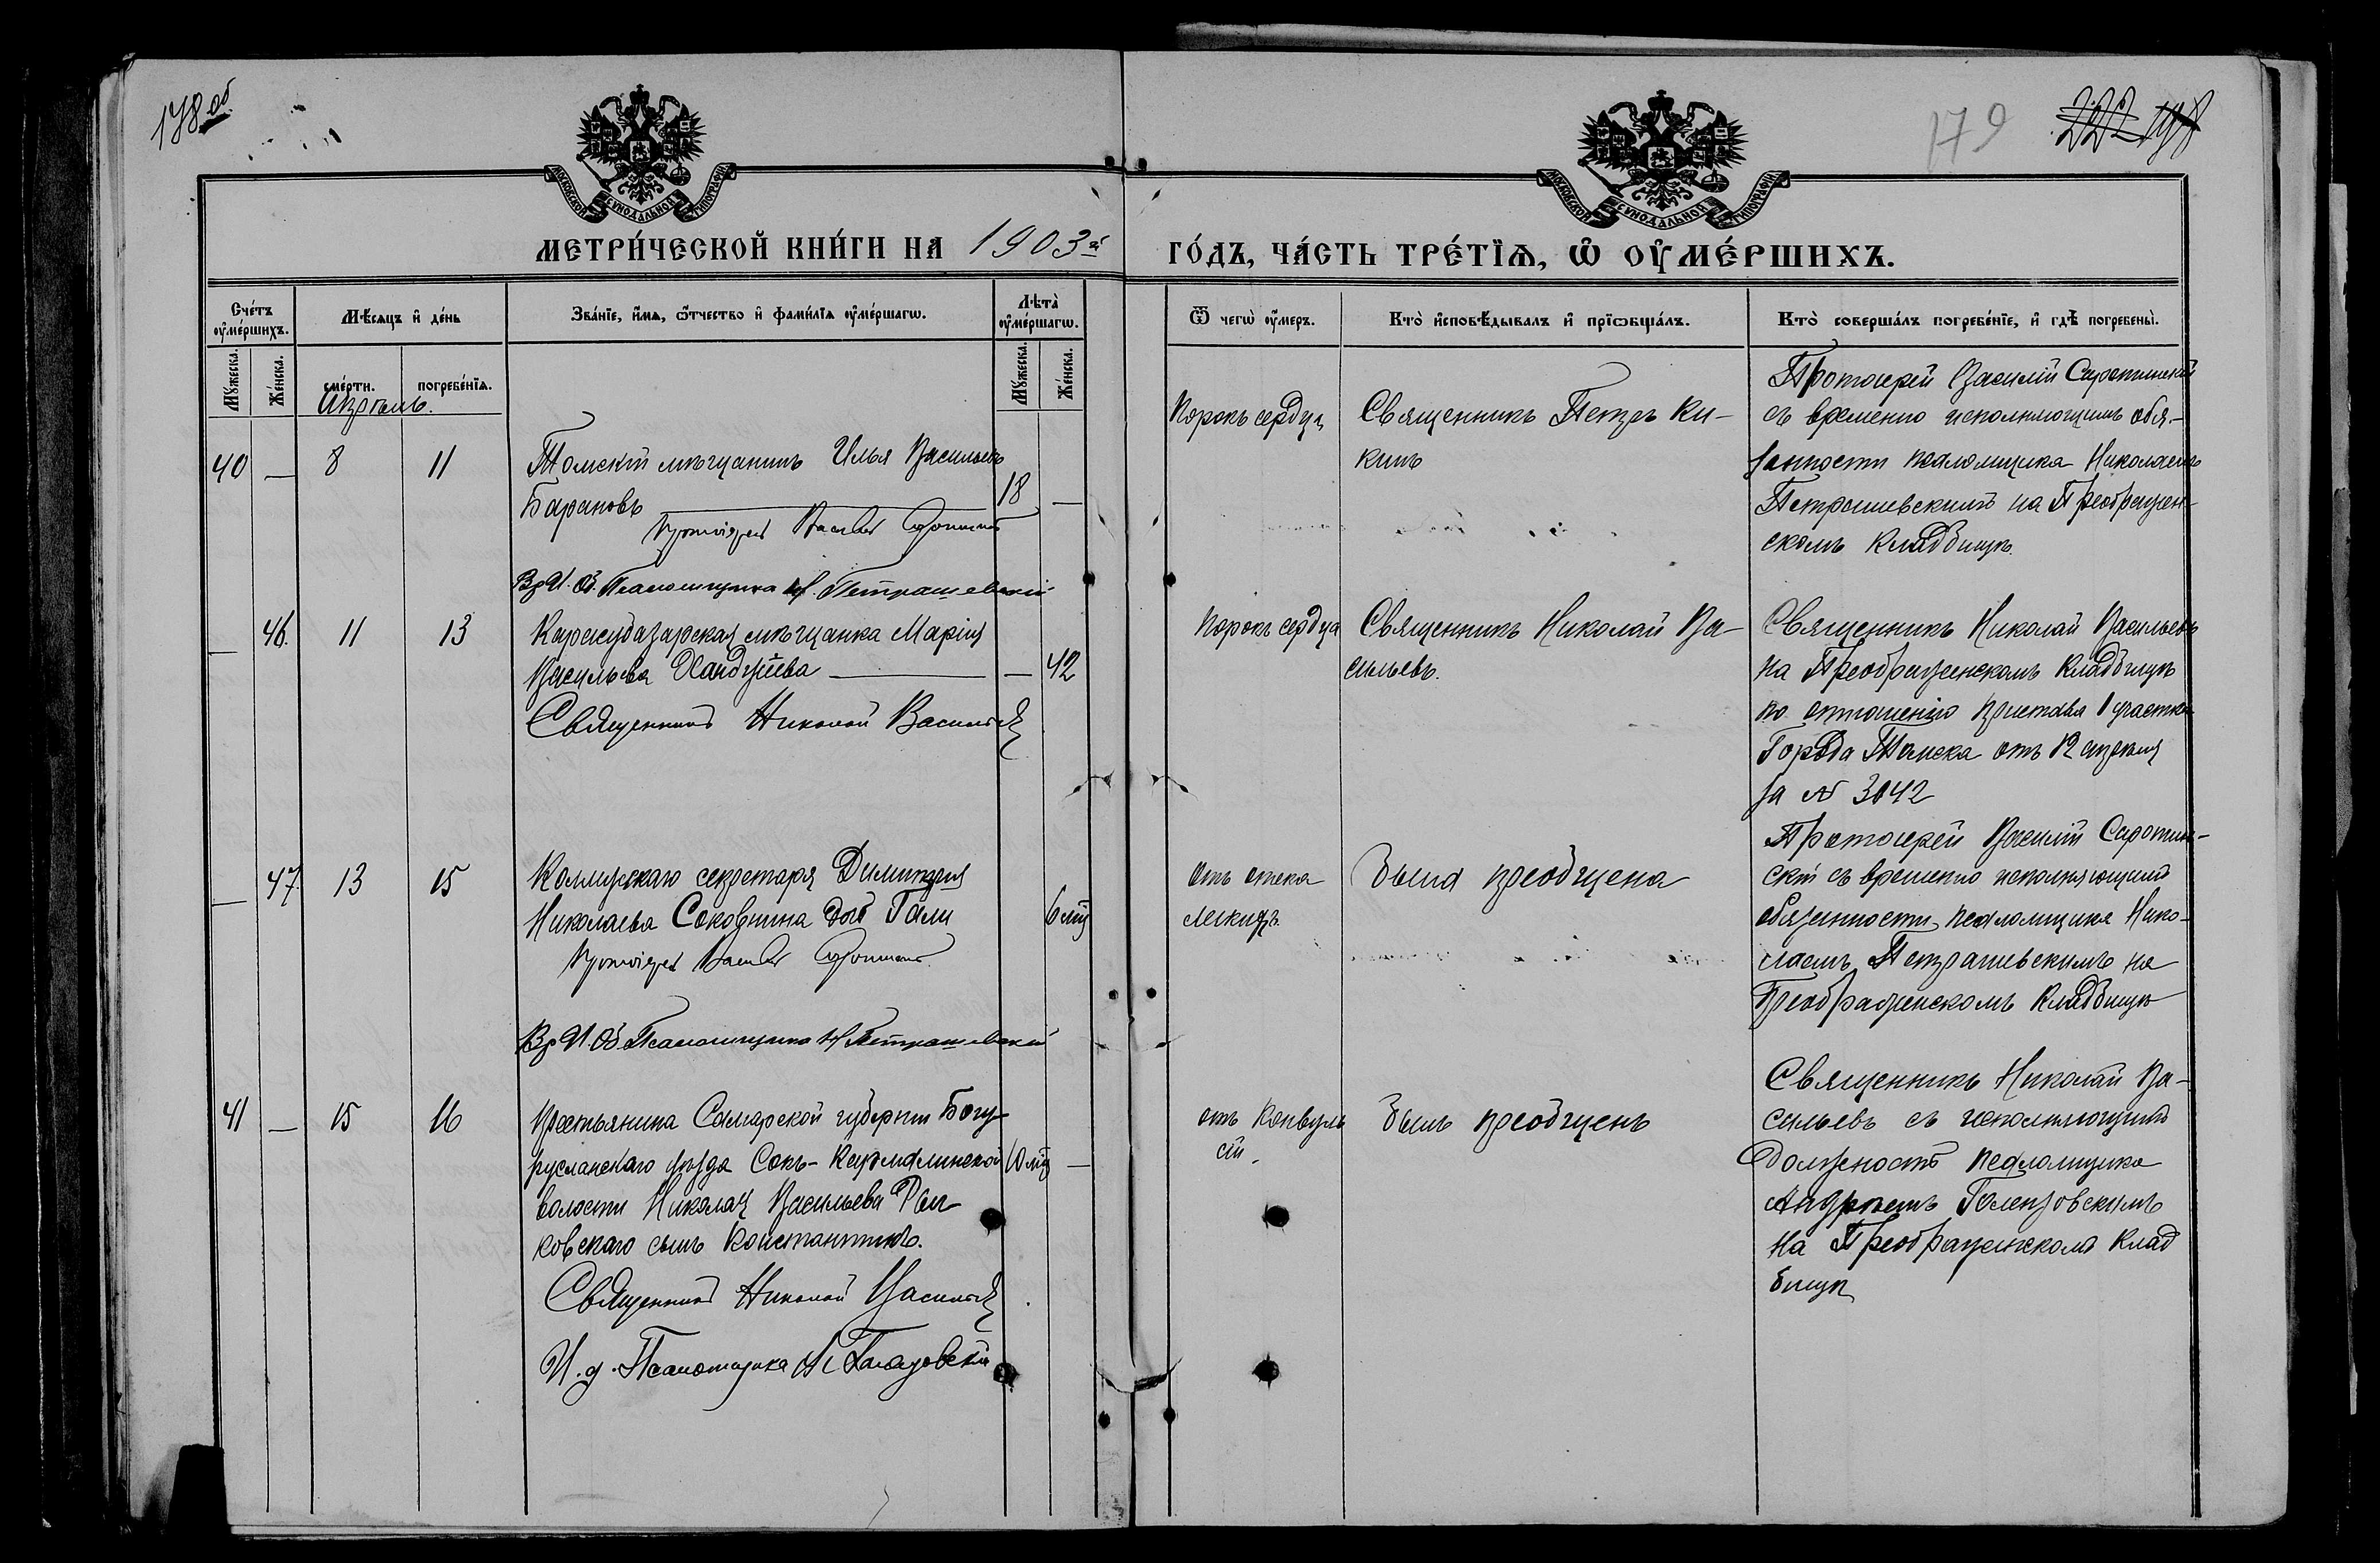 178 об.
179
222 198
МОСКОВСКОЙ СѴНОДАЛЬНОЙ ТИПОГРАФІИ
МОСКОВСКОЙ СѴНОДАЛЬНОЙ ТИПОГРАФІИ
МЕТРИ́ЧЕСКОЙ КНИ́ГИ НА 1903й
ГО́ДЪ, ЧА́СТЬ ТРЕ́ТЇѦ, Ѡ҆ ОУ҆МЕ́РШИХЪ.
Сче́тъ оу҆ме́ршихъ.
Мꙋ́жеска.
Же́нска.
Мѣ́сяцъ и҆ де́нь
сме́рти.
погребе́нїѧ.
Зва́нїе, и҆́мѧ, ѻ҆́тчество и҆ фами́лїѧ оу҆ме́ршагѡ.
Лѣ́та оу҆ме́ршагѡ.
Мꙋ́жеска.
Же́нска.
Ѿ чегѡ̀ оу҆́меръ.
Кто̀ и҆сповѣ́дывалъ и҆ прїѡбща́лъ.
Кто̀ соверша́лъ погребе́нїе, и҆ гдѣ̀ погребены̀.
Апрѣль.
40 — 8 11
Томскій мѣщанинъ Илья Васильевъ
Барановъ
18 —
Протоіерей Василій Сиротинскій
Вр. И. Об. Псаломщика Н. Петрашевскій
Порокъ сердца
Священникъ Петръ Ки-
кинъ
Протоиерей Василій Сиротинскій
съ временно исполняющимъ обя-
занности псаломщика Николаемъ
Петрашевскимъ на Преображен-
скомъ кладбищѣ.
— 46. 11 13
Карасубазарская мѣщанка Марія
Васильева
— 42
Священникъ Николай Васильевъ
Порокъ сердца
Священникъ Николай Ва-
сильевъ.
Священникъ Николай Васильевъ
на Преображенскомъ кладбищѣ
по отношенію пристава 1 участка
Города Томска отъ 12 апрѣля
за № 3042
— 47. 13 15
Коллежскаго секретаря Димитрія
Николаева Соковнина дочь Галя
6 мѣс
Протоіерей Василій Сиротинскій
Вр. И. Об. Псаломщика Н. Петрашевскій
отъ отека
легкихъ.
Была преобщена
Протоиерей Василій Сиротин-
скій съ временно исполняющимъ
обязанности псаломщика Нико-
лаемъ Петрашевскимъ на
Преображенскомъ кладбищѣ
41 — 15 16
Крестьянина Самарской губерніи Богу-
русланскаго уѣзда Сокъ-Кармалинской
волости Николая Васильева
ковскаго сынъ Константинъ.
10 мѣс —
Священникъ Николай Васильевъ
И. д. Псаломщика
отъ конвуль
сій.
Былъ преобщенъ
Священникъ Николай Ва-
сильевъ съ исполняющимъ
должность псаломщика
Андреемъ
на Преображенскомъ клад
бищѣ